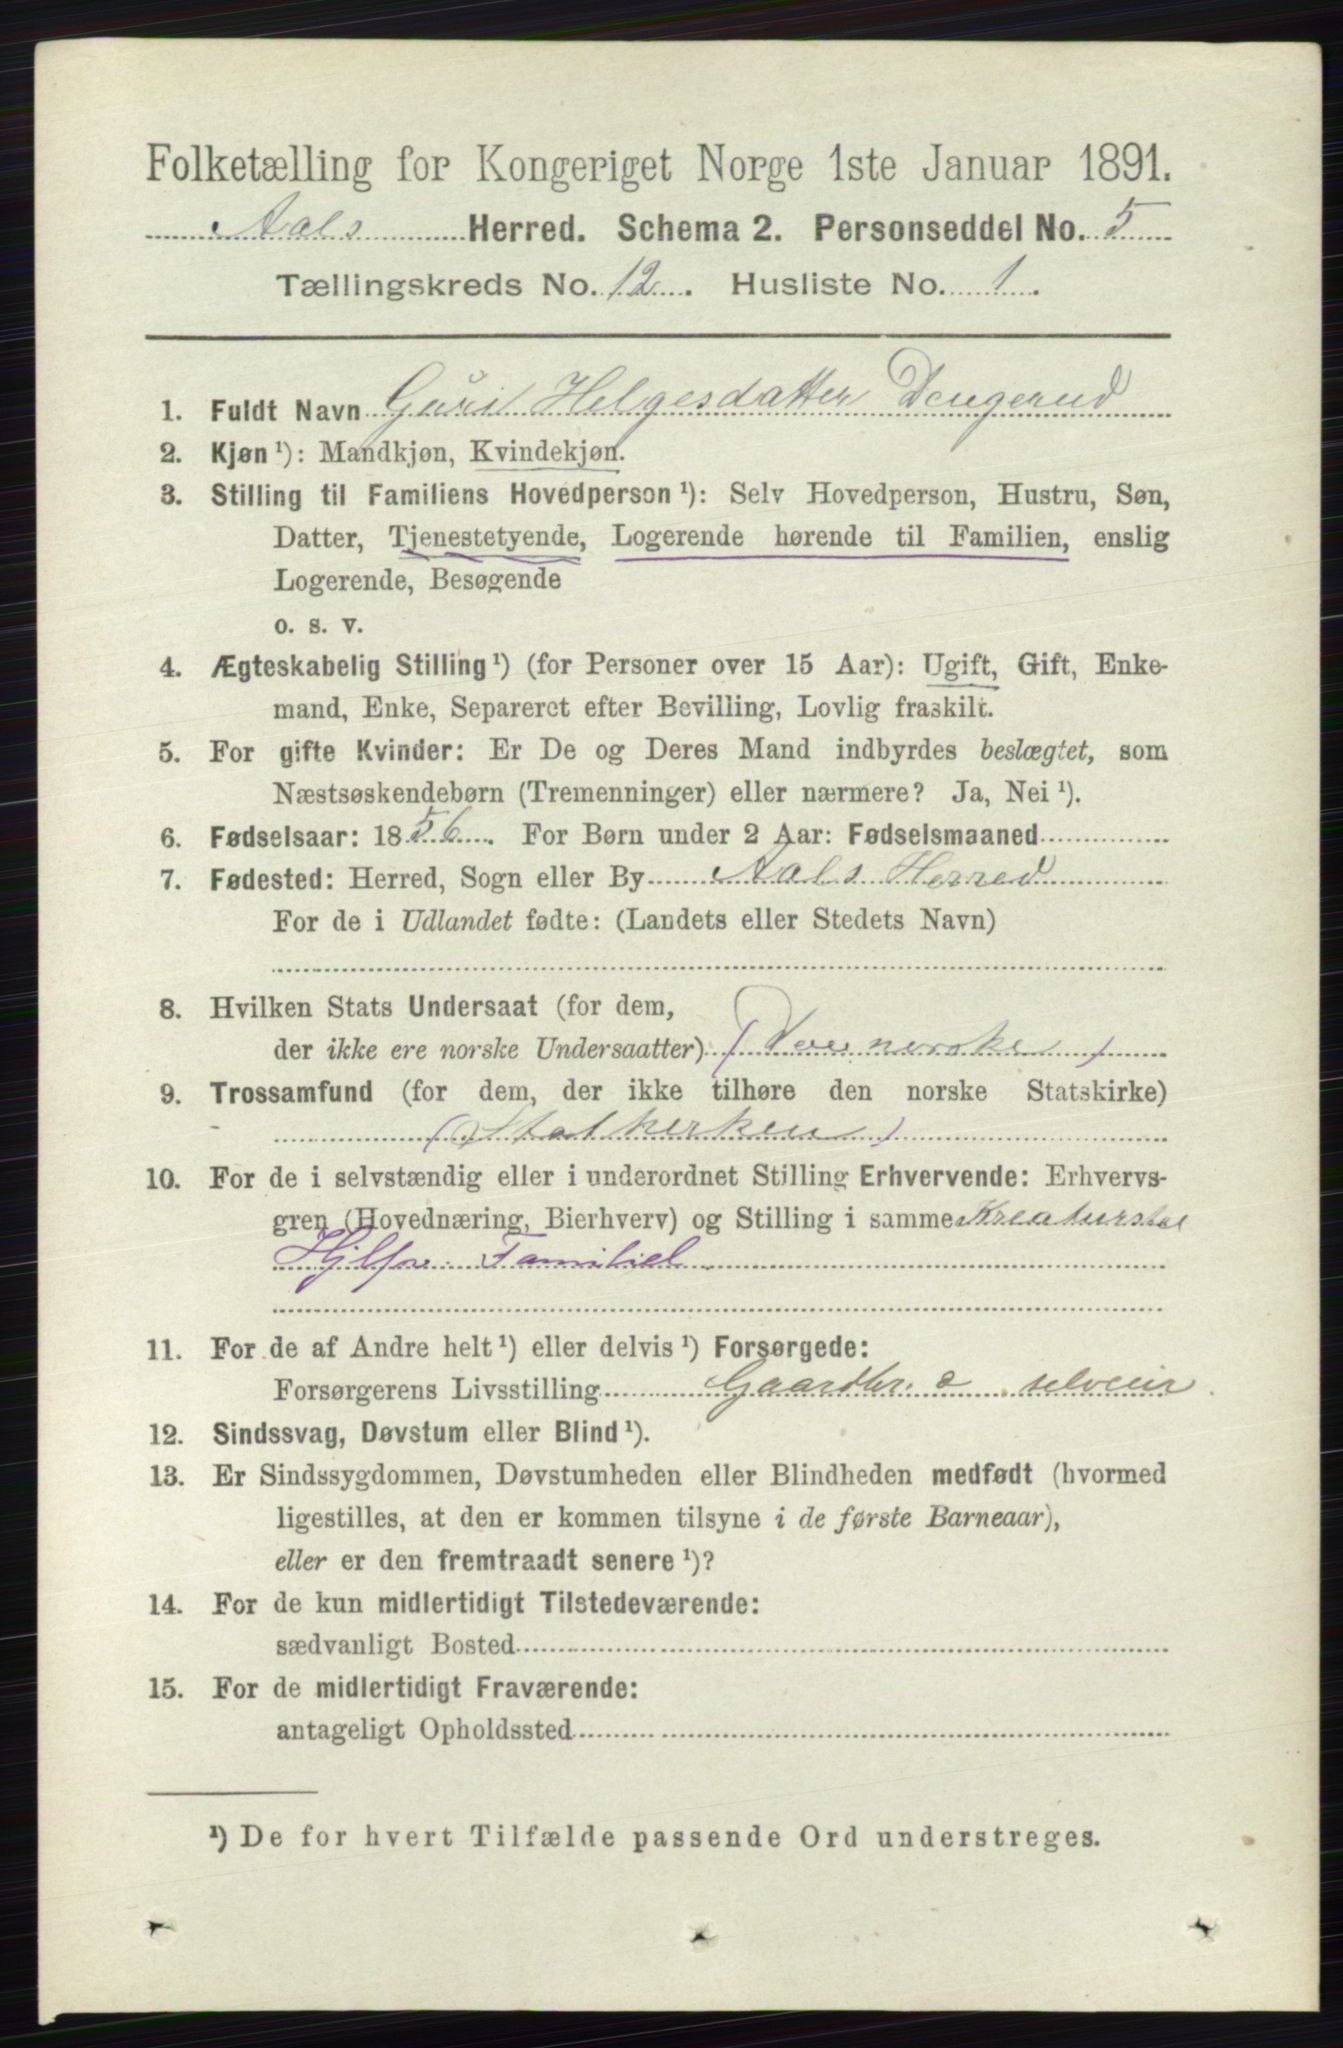 Folketælling for Kongeriget Norge 1ste Januar 1891.
Aals Herred. Schema 2. Personseddel No. 5
Tællingskreds No. 12. Husliste No. 1.
1. Fuldt Navn Guri Helgesdatter Dengerud
2. Kjøn ¹): Mandkjøn, Kvindekjøn.
3. Stilling til Familiens Hovedperson ¹): Selv Hovedperson, Hustru, Søn,
Datter, Tjenestetyende, Logerende hørende til Familien, enslig
Logerende, Besøgende
o. s. v.
4. Ægteskabelig Stilling ¹) (for Personer over 15 Aar): Ugift, Gift, Enke-
mand, Enke, Separeret efter Bevilling, Lovlig fraskilt.
5. For gifte Kvinder: Er De og Deres Mand indbyrdes beslægtet, som
Næstsøskendebørn (Tremenninger) eller nærmere? Ja, Nei ¹).
6. Fødselsaar: 1856. For Børn under 2 Aar: Fødselsmaaned
7. Fødested: Herred, Sogn eller By Aals Herred
For de i Udlandet fødte: (Landets eller Stedets Navn)
8. Hvilken Stats Undersaat (for dem,
der ikke ere norske Undersaatter) (Den norske)
9. Trossamfund (for dem, der ikke tilhøre den norske Statskirke)
(Statkirken)
10. For de i selvstændig eller i underordnet Stilling Erhvervende: Erhvervs-
gren (Hovednæring, Bierhverv) og Stilling i samme Kreaturstel
Familiel
11. For de af Andre helt ¹) eller delvis ¹) Forsørgede:
Forsørgerens Livsstilling Gaardbr. selveier
12. Sindssvag, Døvstum eller Blind ¹).
13. Er Sindssygdommen, Døvstumheden eller Blindheden medfødt (hvormed
ligestilles, at den er kommen tilsyne i de første Barneaar),
eller er den fremtraadt senere ¹)?
14. For de kun midlertidigt Tilstedeværende:
sædvanligt Bosted
15. For de midlertidigt Fraværende:
antageligt Opholdssted
¹) De for hvert Tilfælde passende Ord understreges.